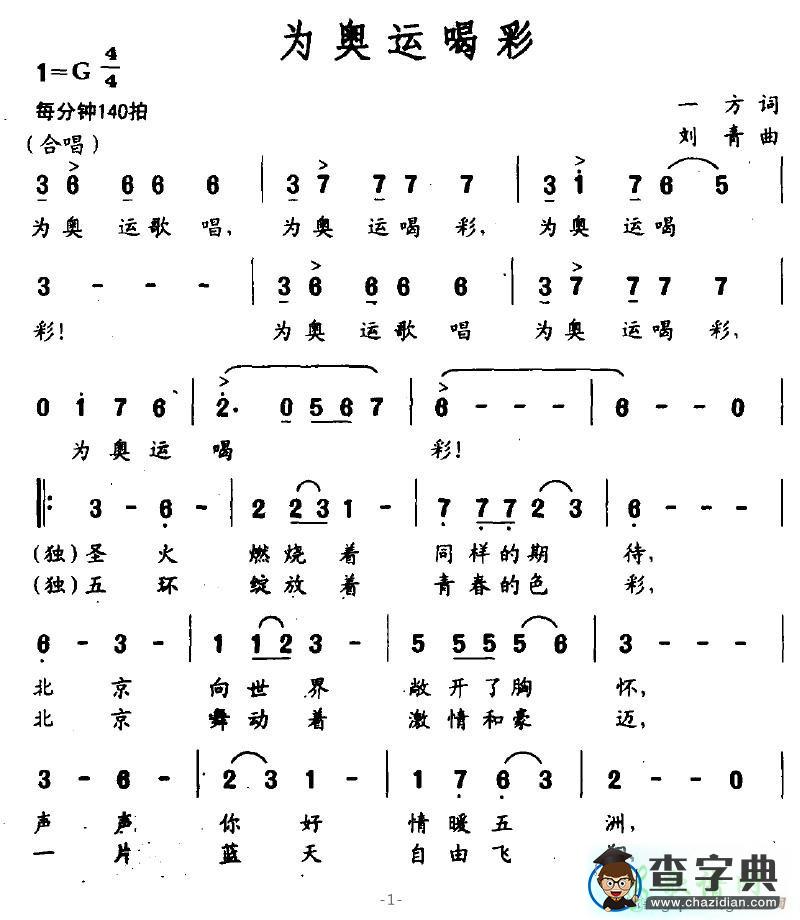 为奥运喝彩
1=G 4/4
每分钟140拍
一方词
(合唱)
刘青曲
3 6 6 6 6 | 3 7 7 7 7 | 3 i 7 6 5
为奥运歌唱, 为奥运喝彩, 为奥运喝
3 - - - | 3 6 6 6 6 | 3 7 7 7 7 |
彩! 为奥运歌唱 为奥运喝彩,
0 i 7 6 | 2· 0 5 6 7 | 6 - - - | 6 - - 0
为奥运喝 彩!
‖: 3 - 6 - | 2 2 3 1 - | 7 7 7 2 3 | 6 - - - |
(独)圣火燃烧着同样的期待,
(独)五环绽放着青春的色彩,
6 - 3 - | 1 1 2 3 - | 5 5 5 5 6 | 3 - - - |
北京向世界敞开了胸怀,
北京舞动着激情和豪迈,
3 - 6 - | 2 3 1 - | 1 7 6 3 | 2 - - 0
声声你好情暖五洲,
一片蓝天自由飞
查字典
www.chazidian.com
-1-